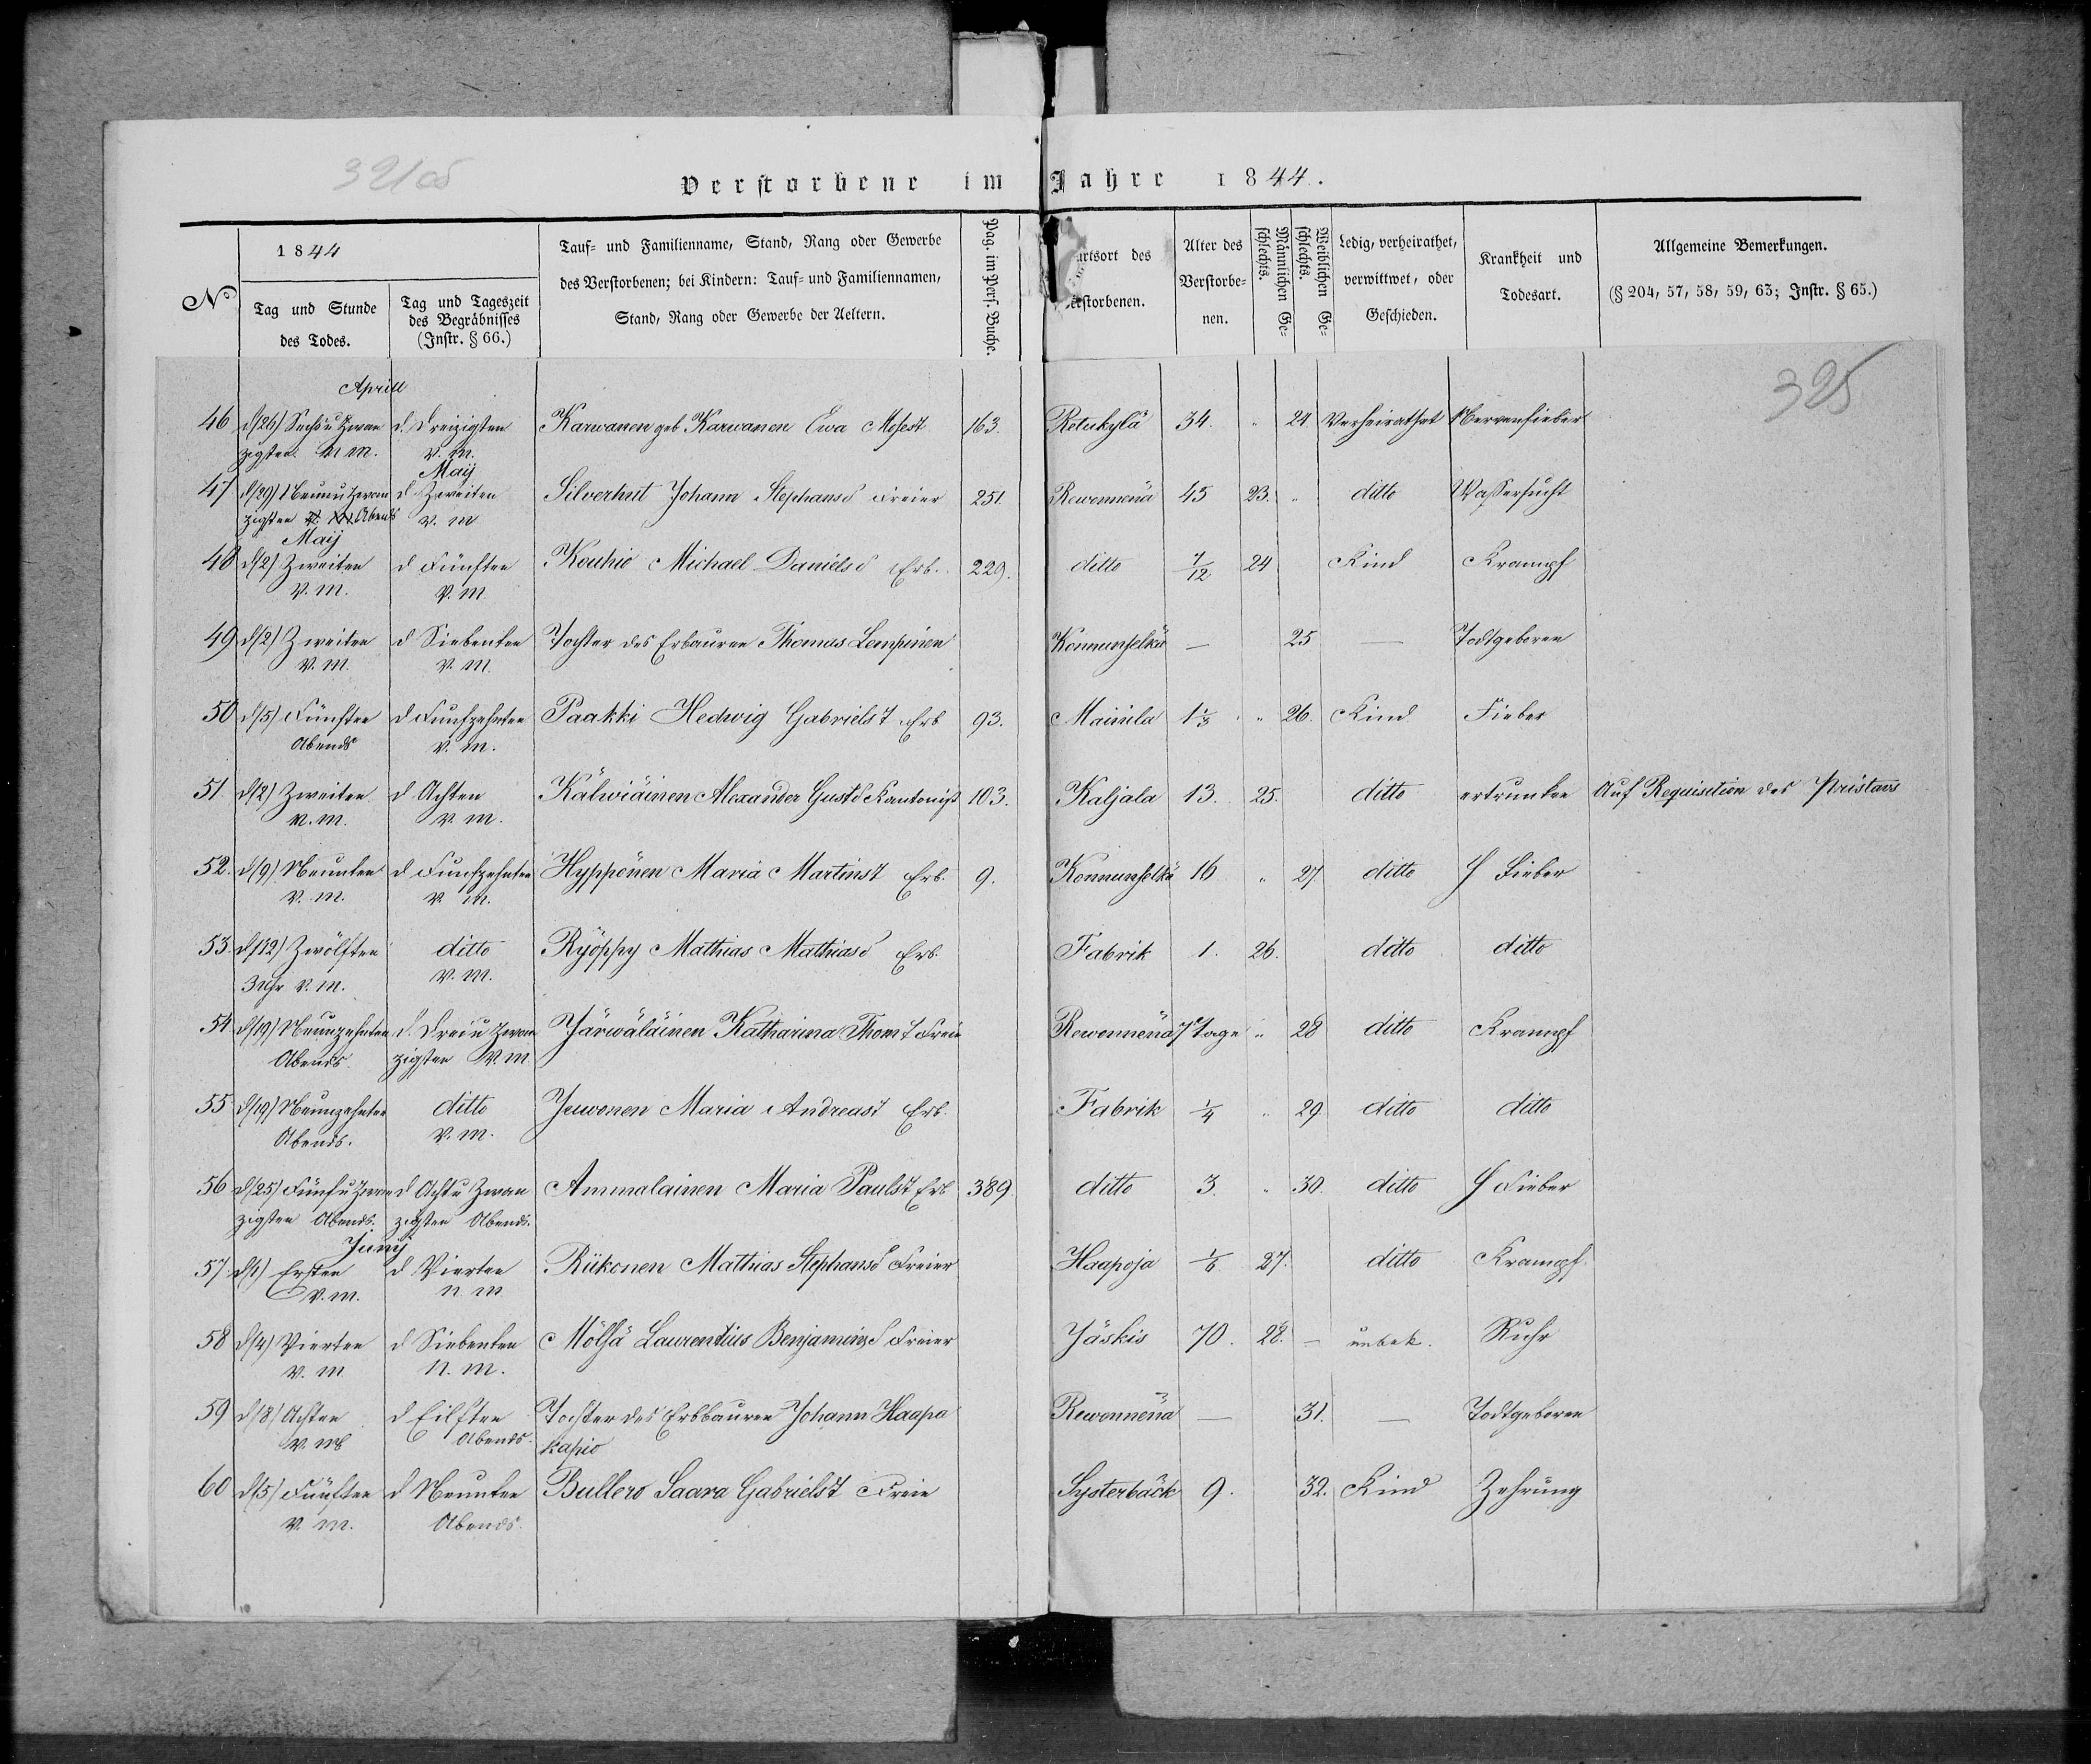 Verstorbene im Jahre 1844.
325
1844
Tag und Stunde des Todes.
Tag und Tageszeit des Begräbnisses (Instr. § 66.)
Tauf- und Familienname, Stand, Rang oder Gewerbe
des Verstorbenen; bei Kindern: Tauf- und Familiennamen,
Stand, Rang oder Gewerbe der Aeltern.
Pag. im Pers.-Buche.
des
Alter des Verstorbenen.
Männlichen Geschlechts.
Weiblichen Geschlechts.
Ledig, verheirathet, verwittwet, oder Geschieden.
Krankheit und Todesart.
Allgemeine Bemerkungen.
(§ 204, 57, 58, 59, 63; Instr. § 65.)
Aprill
46 d (26) Sechs u Zwan d. Dreizigsten Karwanen geb Karwanen Ewa Mosest 163. Retukylä 34. " 24 Verheirathet Nervenfieber
zigsten. V. m.
Maij
47 d (29) Neun u Zwan d Zweiten Silverhut Johann Stephans Freier 251. Rewonnenä 45 23. " ditto Wassersucht
zigsten Abends V. m
Maij
48 d (2) Zweiten d Fünften Kouhio Michael Daniels Erb. 229. ditto 24 Kind Krampf
V. m. V. m
49 d (2) Zweiten d Siebenten Tochter des Erbauren Thomas Lempinen Konnunselkä — 25 — Todtgeboren
V. m. V. m.
50 d (5) Fünften d Funfzehnten Paakki Hedwig Gabrielst Erb 93. Mainila 1 1/3 " 26. Kind Fieber
Abends V. m.
51. d (2) Zweiten d Achten Kälwiäinen Alexander Gust Kantonist 103. Kaljala 13. 25. ditto ertrunken Auf Requisition des Pristavs
V. m.
52. d (9) Neunten d Funfzehnten Hyppönen Maria Martinst Erb. 9. Konnunselkä 16 " 27 ditto Fieber
V. m. V. m.
53. d (12) Zwölften ditto Ryöppy Mathias Mathias Erb. Fabrik 1. 26. ditto ditto
3 Uhr V. m. V. m.
54 d (19) Neunzehnten d. Drei u Zwan Järwäläinen Katharina Thomt Freie Rewonnenä 7 tage " 28 ditto Krampf
Abends. zigsten V. m.
55 d (19) Neunzehnten ditto Juwonen Maria Andreast Erb. Fabrik 1/4 " 29 ditto ditto
Abends. V. m.
56 d (25) Fünf u Zwan d Acht u Zwan Ammalainen Maria Paulst Erb 389 ditto 3. " 30. ditto Fieber
zigsten Abends. zigsten Abends.
Junij
57 d (1) Ersten d Vierten Riikonen Mathias Stephans Freier Haapoja 27. ditto Krampf.
V. m. n. m
58 d (4) Vierten d Siebenten Mölsä Laurentius Benjamins Freier Jäskis 70. 28. – unbek. Ruhr
V. m n. m.
59 d (8) Achten d Eilften Tochter des Erbbauren Johann Haapa Rewonnenä — 31. — Todtgeboren
Abends. kapio
60 d (5) Fünften d Neunten Bullero Saara Gabrielst Freie Systerbäck 9. 32. Kind Zehrung
V. m. Abends.